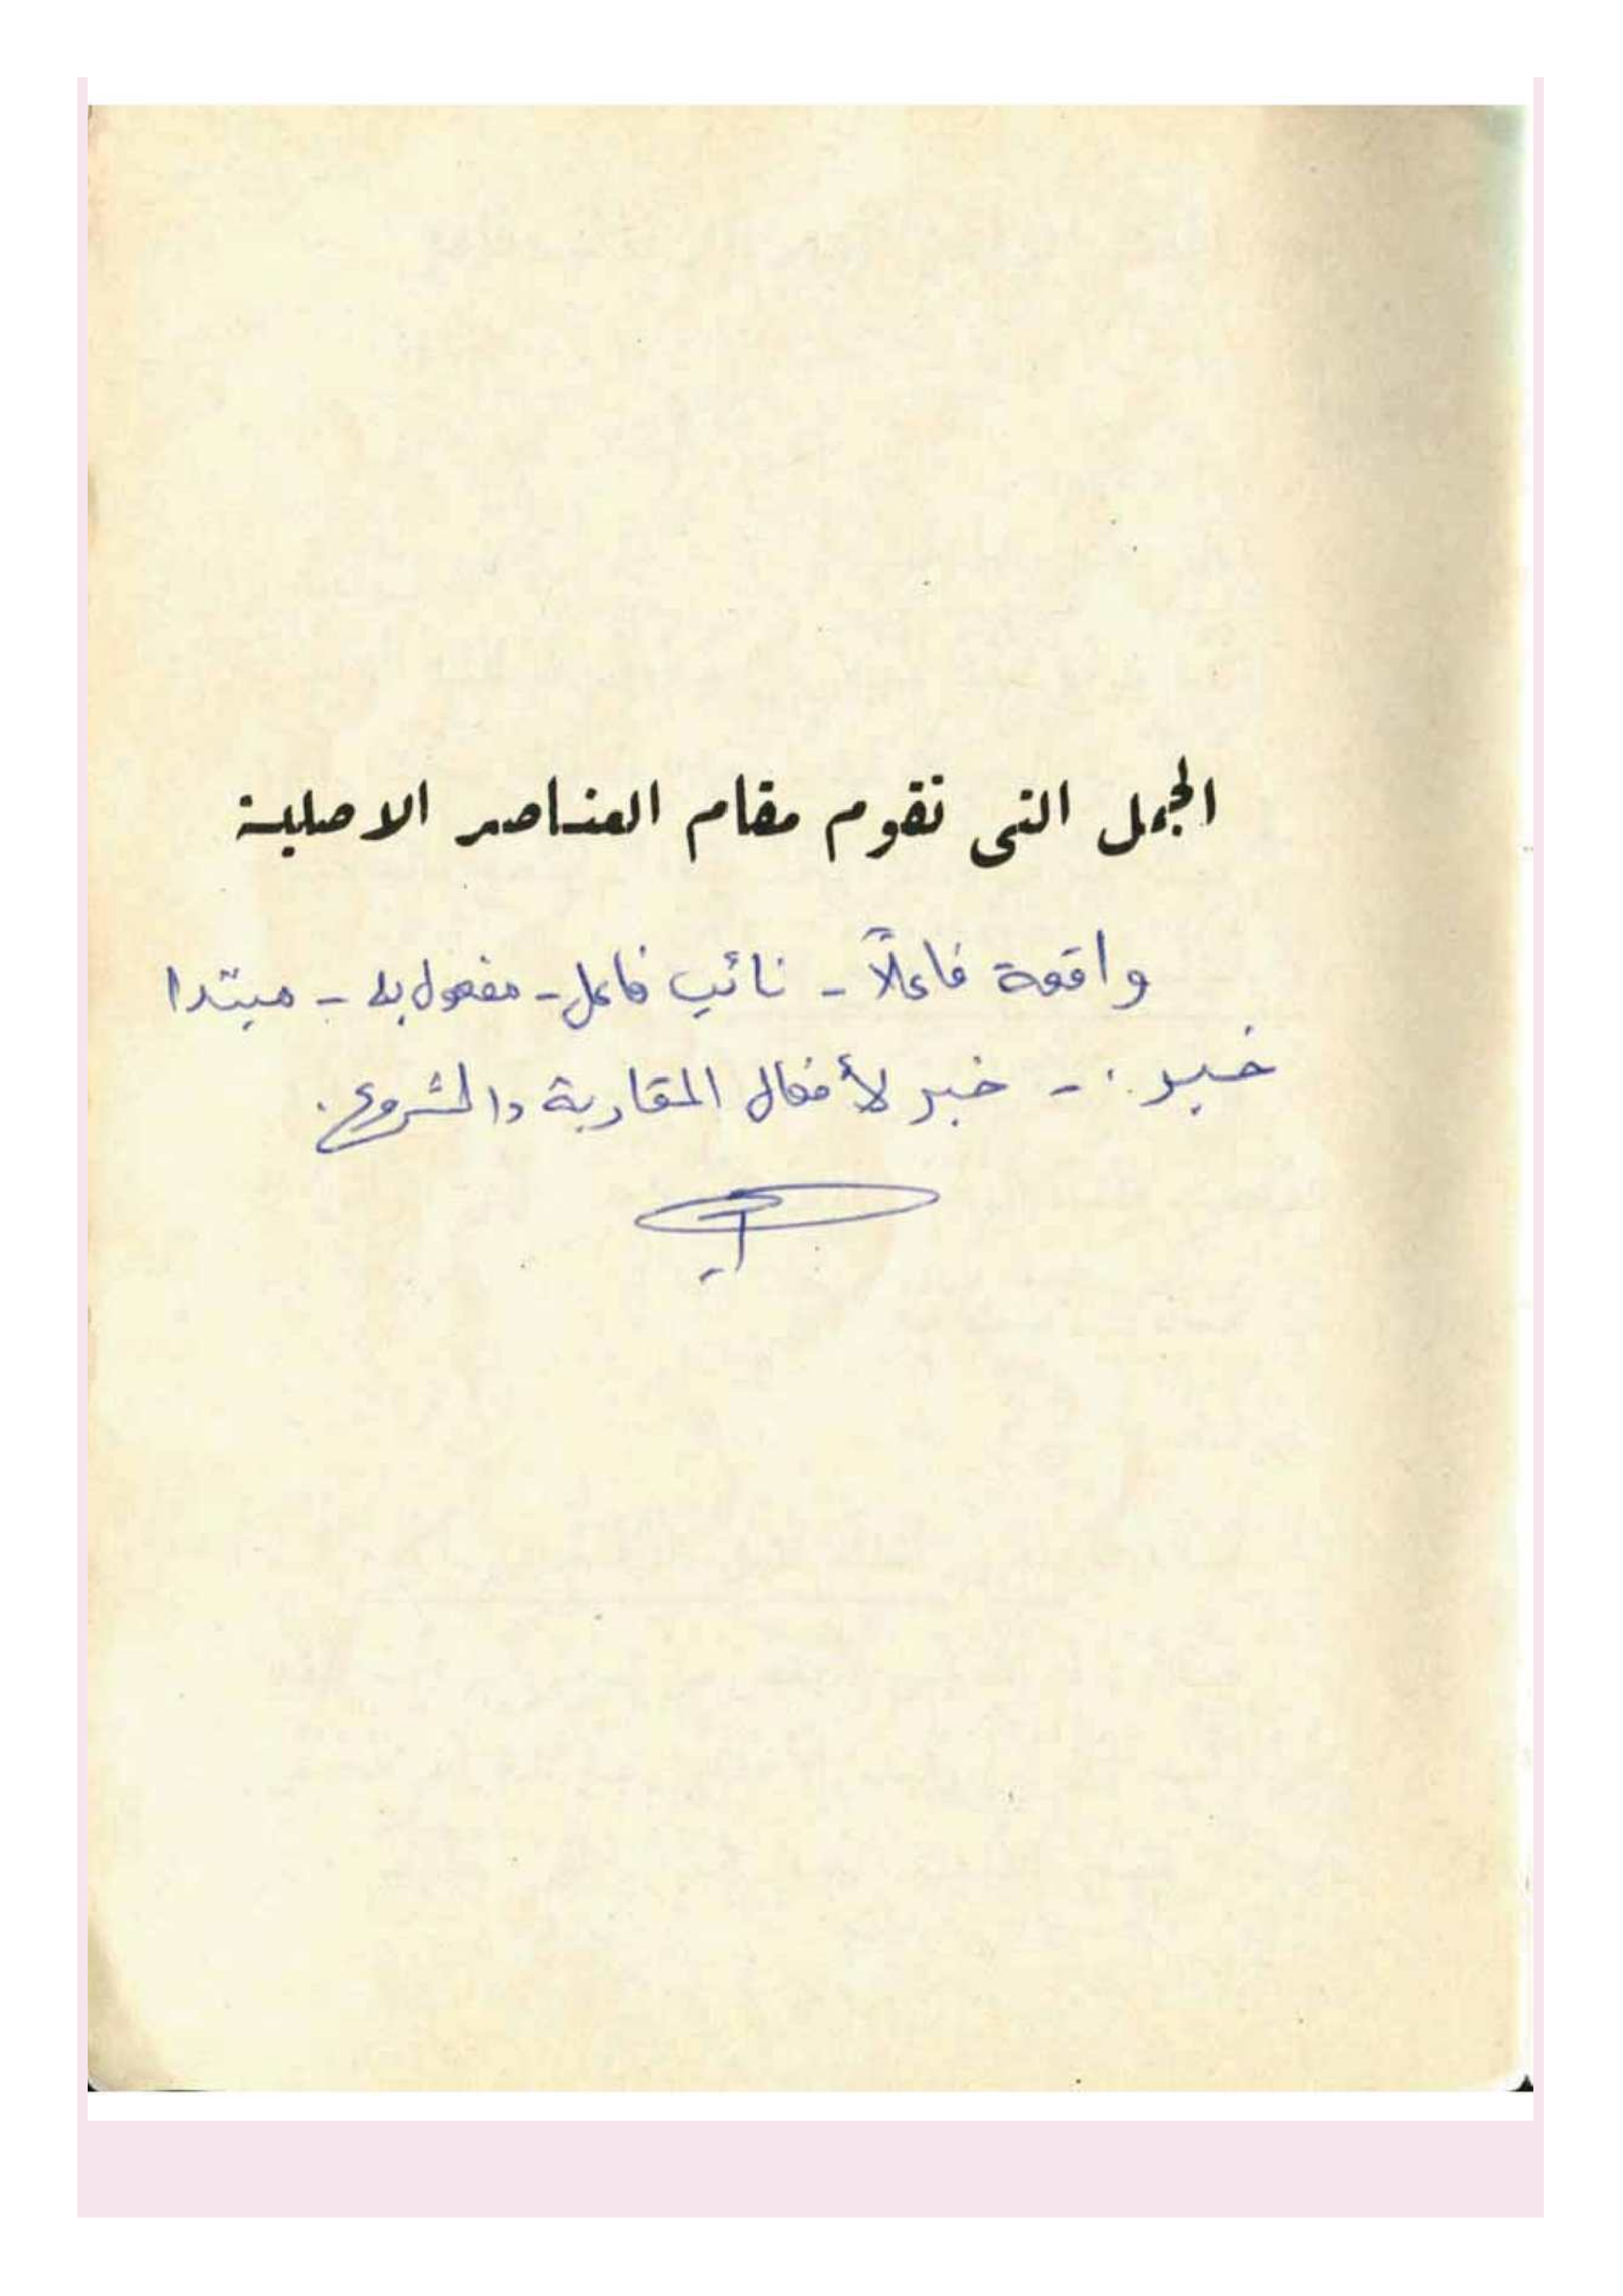 الجمل التى تقوم مقام العناصر الاصلية
واقعة فاعلاً - نائب فاعل - مفعول به - مبتدا
خبر - خبر لأفعال المقاربة والشروع.